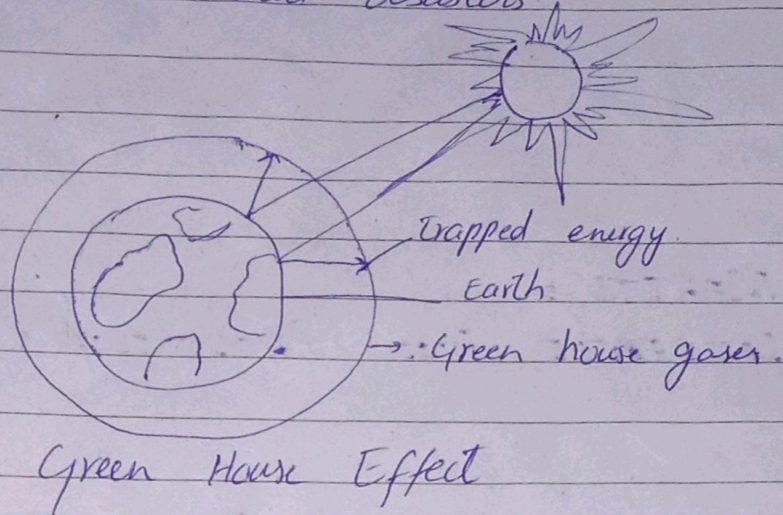 Trapped energy.
Earth.
Green house gases.
Green House Effect